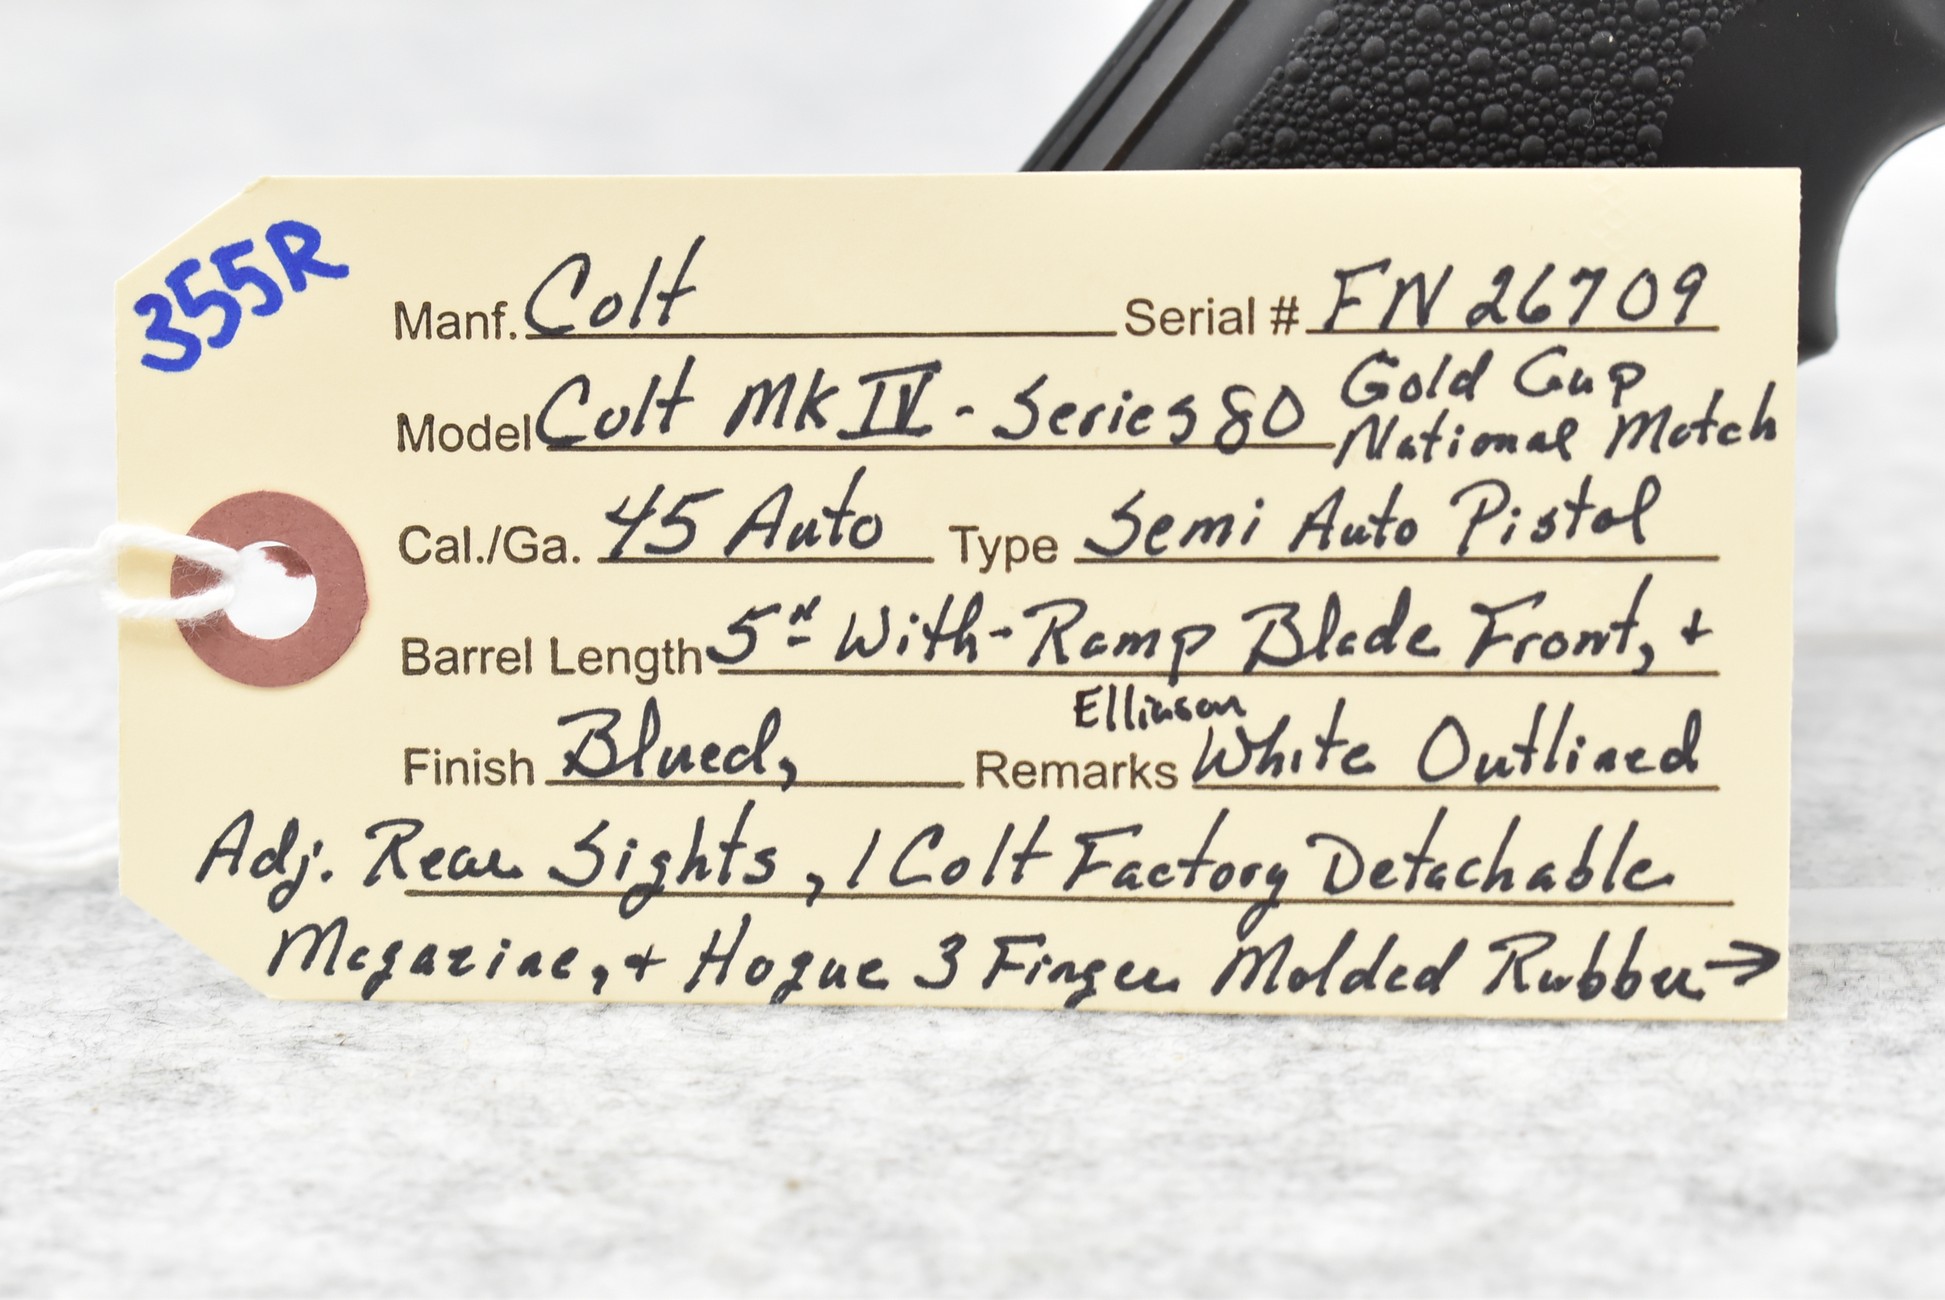 355R
Manf. Colt Serial # FN 26709
Model Colt MK IV - Series 80 Gold Cup
National Match
Cal./Ga. 45 Auto Type Semi Auto Pistol
Barrel Length 5" With - Ramp Blade Front, +
Elliason
Finish Blued, Remarks White Outlined
Adj. Rear Sights, 1 Colt Factory Detachable
Magazine, + Hogue 3 Finger Molded Rubber →